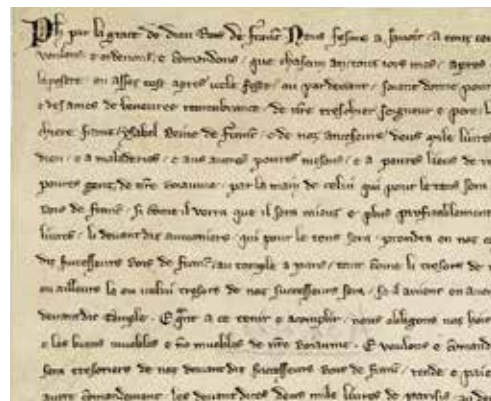 Ph par la grace de dieu Rois de france Nous fesons a savoir a touz ceus
voulons e ordenons e comandons que chascun an touz iors mes apres
la poste en asses tost apres icele feste ou par devant soient donne pour
e des ames de beneures remembrance de nre treschier seigneur e pere
chiere feme ysabel Reine de france e de noz ancesseurs deus mile livres
dieu e a maladeries e aus autres povres mesons e a povres lieus de re
povres genz de nre Roiaume par la main de celui qui pour le tens sera
Rois de france si come il verra que il sera mieus e plus profitablement
livres li devant diz aumoniers qui pour le tens sera prendra en noz co
diz successeurs Rois de france au temple a paris tout come li tresors de
ou ailleurs la ou celui tresors de noz successeurs sera se il avient en aucun
devant dit temple E quant a ce tenir e acomplir nous obligons noz hoirs
e les biens muebles e non muebles de nre Roiaume E voulons e comand
sera tresoriers de noz devant diz successeurs Rois de france rende e paie
autre comandement les devant dites deus mile livres de parisis au de